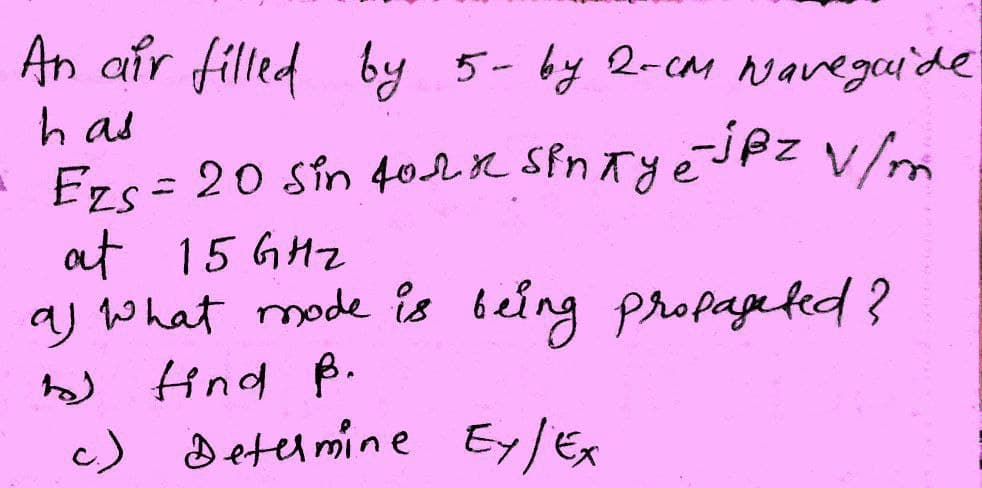 An air filled by 5- by 2-cm wavegaide
has
Ezs = 20 sin 40πx sin πy e^-jβz V/m
at 15 GHz
a) What mode is being propagated?
b) find β.
c.) Determine Ey/Ex